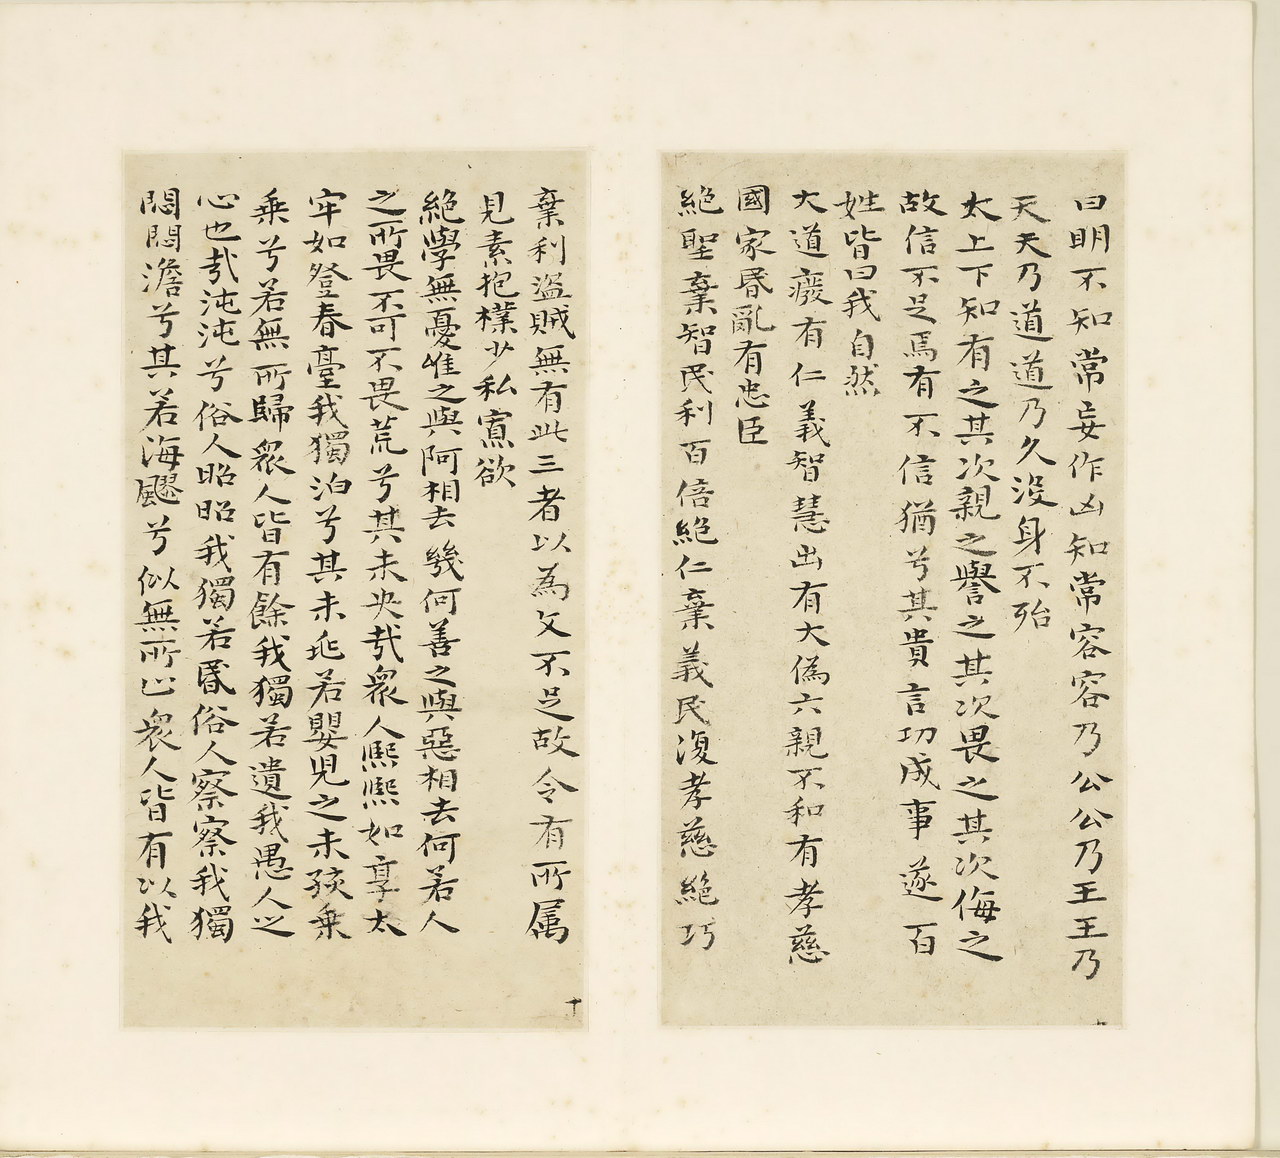 曰明不知常妄作凶知常容容乃公公乃王王乃
天天乃道道乃久没身不殆
太上下知有之其次親之譽之其次畏之其次侮之
故信不足焉有不信猶兮其貴言功成事遂百
姓皆曰我自然
大道癈有仁義智慧出有大偽六親不和有孝慈
國家昬亂有忠臣
絕聖棄智民利百倍絕仁棄義民復孝慈絕巧
棄利盜賊無有此三者以為文不足故令有所属
見素抱樸少私寡欲
絕學無憂唯之與阿相去幾何善之與惡相去何若人
之所畏不可不畏荒兮其未央㢤衆人熈熈如享太
牢如登春臺我獨泊兮其未兆若嬰児之未孩乗
乗兮若無所歸衆人皆有餘我獨若遺我愚人之
心也㢤沌沌兮俗人昭昭我獨若昬俗人察察我獨
悶悶澹兮其若海飂兮似無所止衆人皆有以我
十